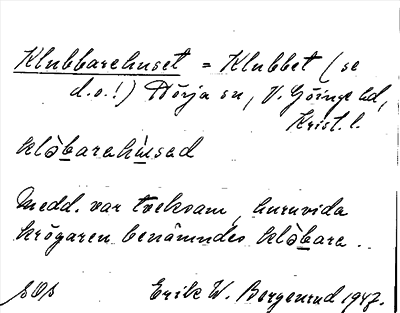 Klubbarehuset = Klubbet (se
d.o.!) Hörja sn, V. Göinge hd,
Krist. l.
klòbarehúsad
Medd. var tveksam, huruvida
krögaren benämndes klòbara..
Erik W. Bergenrud 1947.